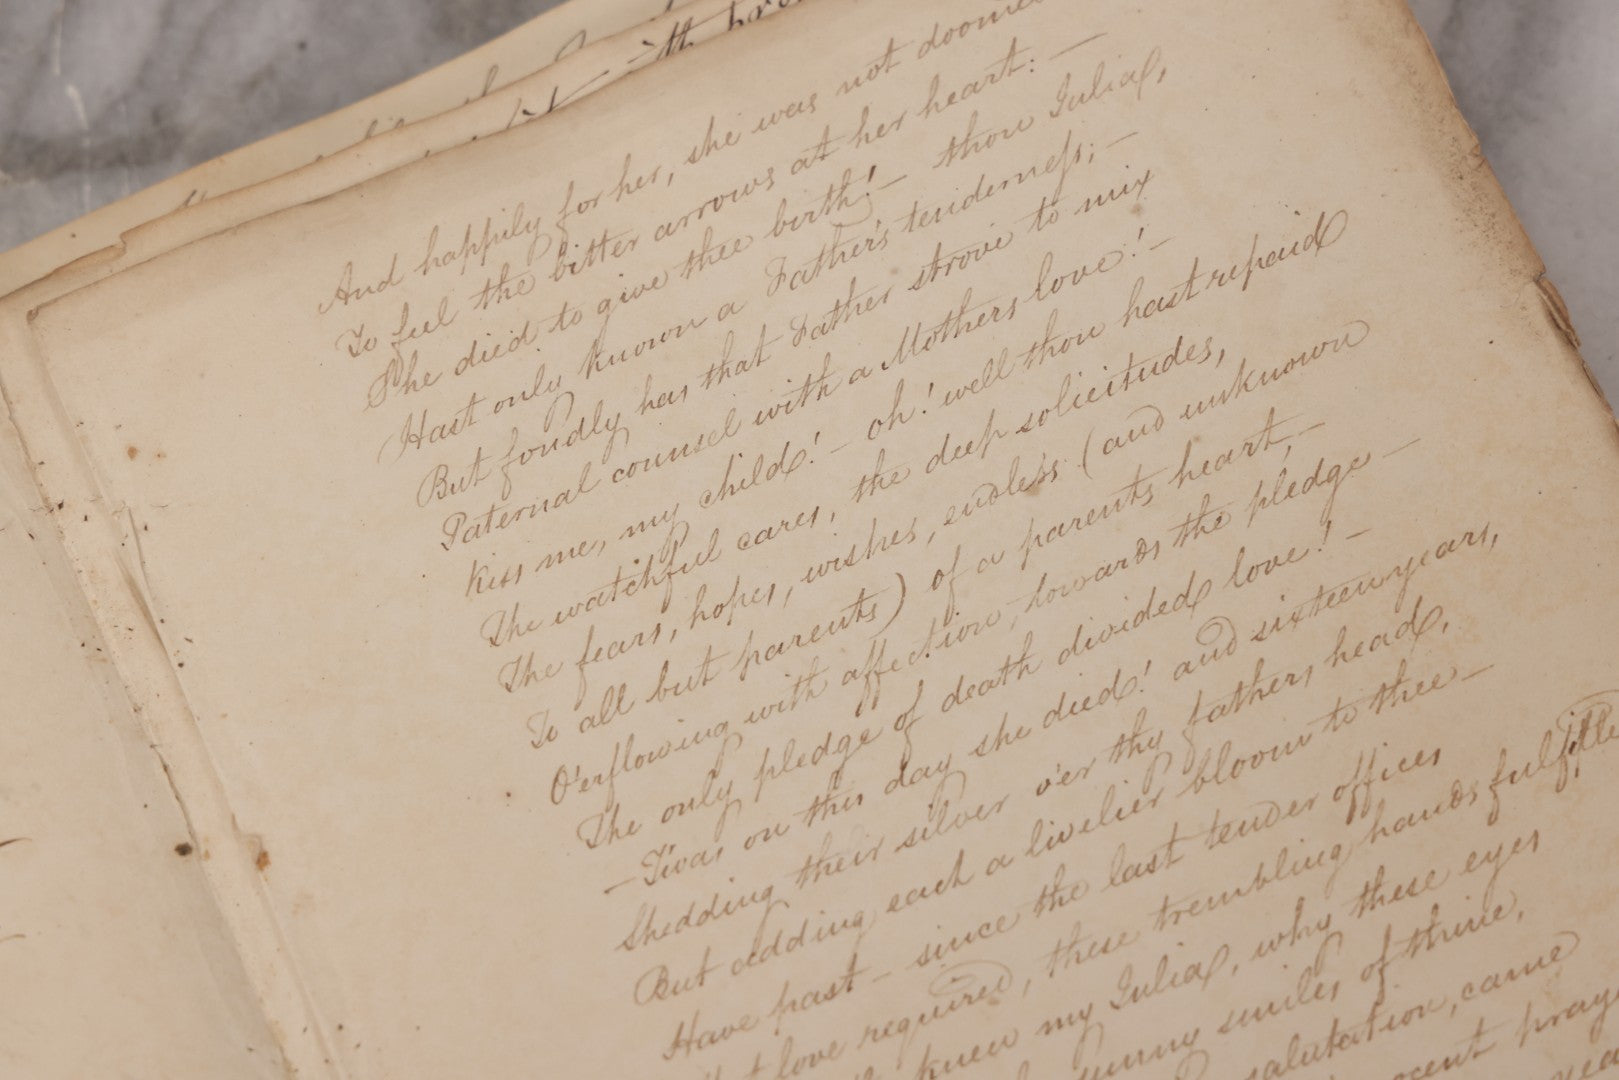 And happily for her, she was not doomed
To feel the bitter arrows at her heart: —
She died to give thee birth! — thou Julia,
Hast only known a Father's tenderness; —
But fondly has that Father strove to mix
Paternal counsel with a Mothers love! —
Kiss me, my child! — oh! well thou hast repaid
The watchful cares, the deep solicitudes,
The fears, hopes, wishes, endless (and unknown
To all but parents) of a parents heart, —
O'erflowing with affection, towards the pledge —
The only pledge of death divided love! —
— T'was on this day she died! and sixteen years,
Shedding their silver o'er thy fathers head,
But adding each a livelier bloom to thee —
Have past — since the last tender offices
love required, these trembling hands fulfille
knew my Julia, why these eyes
sunny smiles of thine,
salutation, came